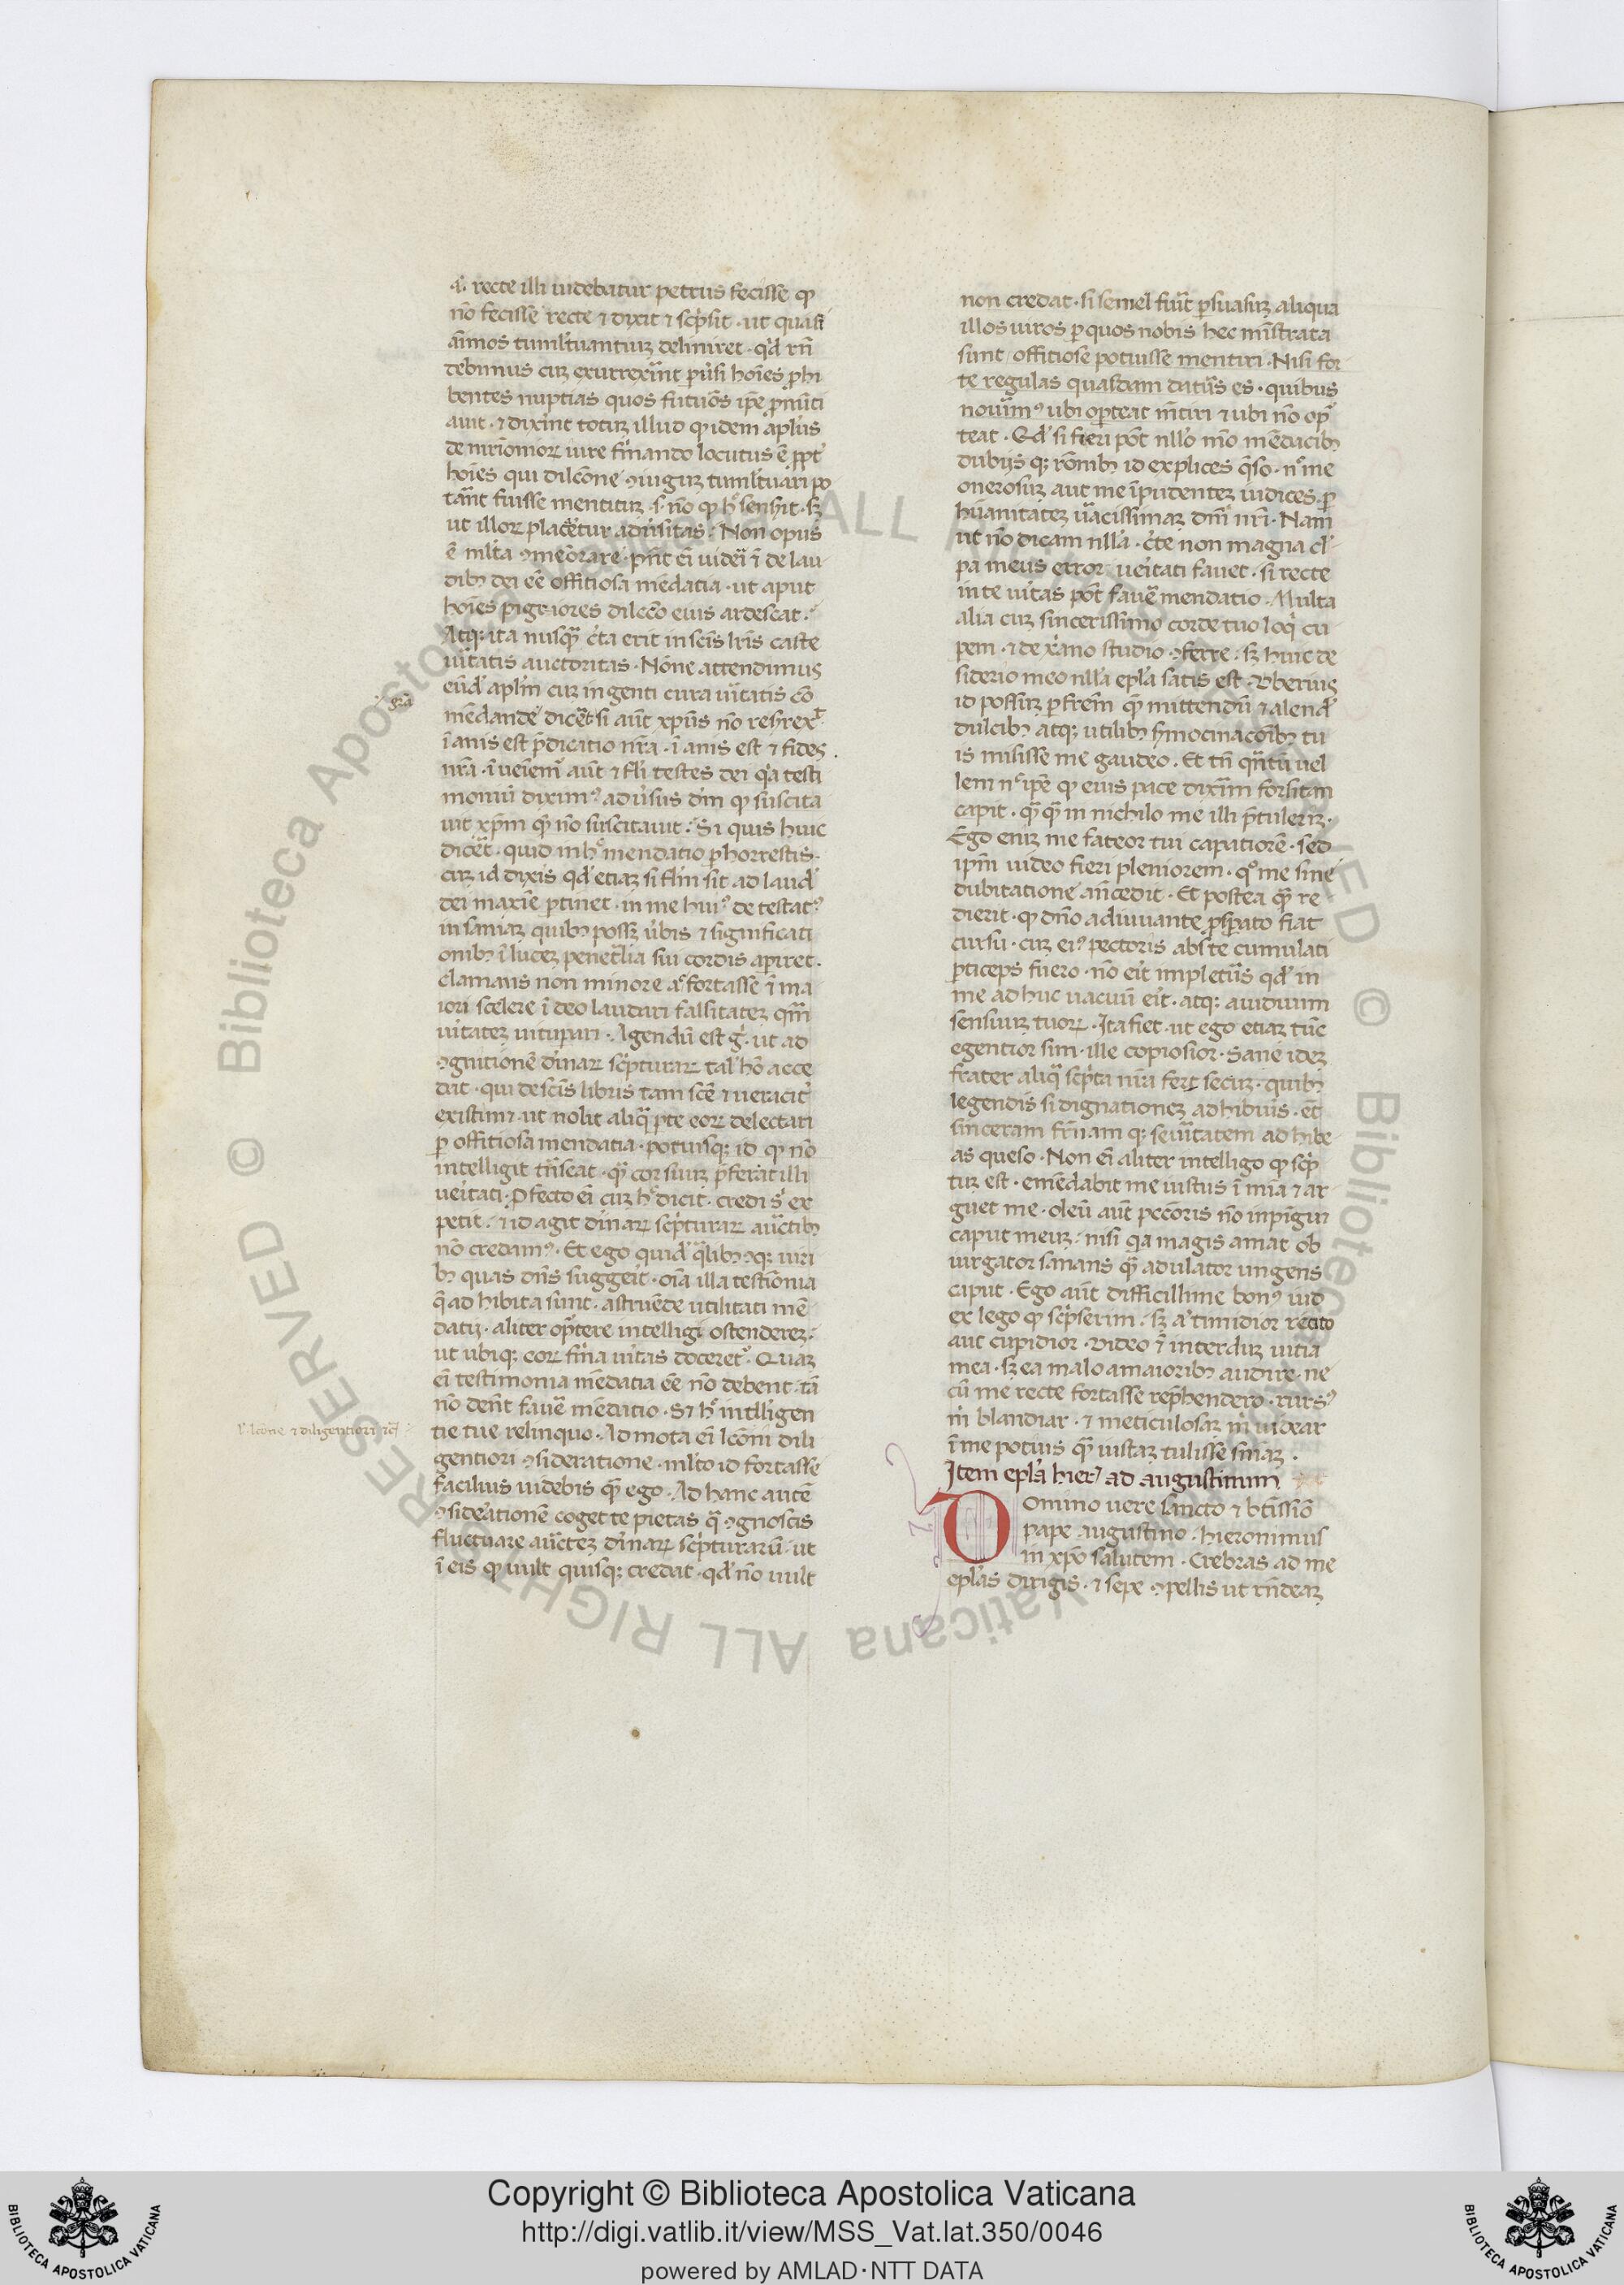 .a. recte illi uidebatur petrus fecisse qp
nō fecisse recte ⁊ dixit ⁊ scp̄sit · ut quasi
aīmos tumltuantiuꝫ deliniret · qd̓ rn̄
debimus cuꝫ exurrexīnt puersi hoīes phi
bentes nuptias quos futuōs ip̄e pnūti
auit · ⁊ dixīnt totuꝫ illud qp idem apl̓us
de mr̄imonioꝝ iure fīmando locutus ē ppt̓
hoīes qui dilcōne ꝯiuguꝫ tumltuari po
tānt fuisse mentituꝫ · s̓ · nō qp h̓ senserit · sꝫ
ut illoꝝ placaretur aduersitas · Non opus
ē mlta ꝯmeōrare · pn̄t ei uideri ī de lau
dibꝫ dei eē offitiosa mēdatia · ut aput
hoīes pigriores dilcc̄o eius ardescat ·
Atqꝫ ita nusqꝫ c̓ta erit in scīs lr̄is caste
uītatis auctoritas · Nōne attendimus
eūd̓ apl̓m cuꝫ ingenti cura uītatis cō
mēdande dicē̄t si aūt xpūs nō resurex̓
īanis est p̄dicatio nr̄a · īanis est ⁊ fides
nr̄a · īueīem̓ aūt ⁊ fl̓i testes dei qa testi
moniū diximꝰ aduersus dm̄ qp suscita
uit xp̄m qꝫ nō suscitauit · Si quis huic
dicēt · quid in h̓ mendatio phorrestis ·
cuꝫ id dixis qd̓ etiaꝫ si fl̓m sit ad laud̓
dei maxīe ptinet · in me huiꝰ de testatꝰ
insaniaꝫ quibꝫ posꝫ u̓bis ⁊ significati
onibꝫ ī luceꝫ penet̄lia sui cordis apiret ·
clamans non minore a̓ fortasse ī ma
iori scelere ī deo laudari falsitateꝫ qm̄
uītateꝫ uitupari · Agendū est g̓ · ut ad
ꝯgnitionē dīnaꝝ scp̄turaꝝ tal̓ hō acce
dat · qui de scīs libris tam scē ⁊ ueracit̓
existimet · ut nolit aliqꝫ pte eoꝝ delectari
p offitiosa mendatia · potuisqꝫ id qp nō
intelligit trn̄seat · qꝫ cor suuꝫ p̄ferat illi
ueītati · Pfecto ei cuꝫ h̓ dicit · credi s̓ ex
petit · ⁊ id agit dīnaꝝ scp̄turaꝝ auctibꝫ
nō credamꝰ · Et ego quid̓ qꝫlibꝫcqꝫ uiri
bꝫ quas dn̄s suggeit · oīa illa testīonia
q̄ adhibita sunt · astruēde utilitati mē
datij · aliter optere intelligi ostendereꝫ ·
ut ubiqꝫ eoꝝ fīma uītas doceretꝰ · Quaꝫ
ei testimonia mēdatia eē nō debent · tā
nō dent fauē mēdatio · Sꝫ h̓ intlligen
tie tue relinquo · Admota ei lcōni dili
gentiori ꝯsideratione · mlto id fortasse
facilius uidebis qꝫ ego · Ad hanc autē
ꝯsideationē coget te pietas qꝫ ꝯgnoscis
fluctuare aucteꝫ dīnaꝝ scp̄turarū · ut
ī eis qp uult quisqꝫ credat · qd̓ nō uult
gr̄a
l̓ · lcōne ⁊ diligentiori ꝯsi
non credat · si semel fuīt psuasuꝫ aliqua
illos uiros p quos nobis hec mīstrata
sunt offitiose potuisse mentiri · Nisi for
te regulas quasdam daturs es · quibus
nouīmꝰ ubi opteat mtiri ⁊ ubi nō op
teat · Qd̓ si fieri pōt nll̓o mō mēdacibꝫ
dubijsqꝫ rōnibꝫ id explices q̄so · n̓ me
onerosuꝫ aut me ipudenteꝫ iudices p
huanitateꝫ uacissimaꝫ dn̄i nr̄i · Nam
ut nō dicam nll̓a · c̓te non magna cl̓
pa meus error ueitati fauet · si recte
inte uītas pōt fauē mendatio · Multa
alia cuꝫ sincerissimo corde tuo loq̓ cu
pem · ⁊ de xano studio ꝯferre · sꝫ huic de
siderio meo nll̓a epl̓a satis est · Vberius
id possuꝫ p frēm qꝫ mittendū ⁊ alend̓
dulcibꝫ atqꝫ utilibꝫ smocinac̄onibꝫ tu
is misisse me gaudeo · Et tn̄ qn̄tū uel
lem n̓ ip̄e qp eius pace dixīm forsitan
capit · qꝫqꝫ in nichilo me illi p̄tuleriꝫ ·
Ego eniꝫ me fateor tui capatiorē · sed
ip̄m uideo fieri pleniorem · q̓ me sine
dubitatione an̄cedit · Et postea qꝫ re
dierit · qp dn̄o adiuuante p̄spato fiat
cursu · cuꝫ eiꝰ pectoris abste cumulati
pticeps fuero · nō eit impletus qd̓ in
me ad huc uacuū eit · atqꝫ auidum
sensuuꝫ tuoꝝ · Ita fiet · ut ego etiaꝫ tūc
egentior sim · ille copiosior · Sane ideꝫ
frater aliqꝫ scp̄ta nr̄a fert secuꝫ · quibꝫ
legendis si dignationeꝫ adhibuis · et̄
sinceram fr̄nam qꝫ seuītatem adhibe
as queso · Non ei aliter intelligo qp scp̄
tuꝫ est · emēdabit me iustus ī mīa ⁊ ar
guet me · oleū aūt peccōris nō inpīgui
caput meuꝫ · nisi qa magis amat ob
iurgator sanans qꝫ adulator ungens
caput · Ego aūt difficillime bonꝰ iud
ex lego qp scp̄serim · sꝫ a̓ timidior recito
aut cupidior · Video ī interduꝫ uitia
mea · sꝫ ea malo amaioribꝫ audire · ne
cū me recte fortasse rep̄hendero · rursꝰ
m̓ blandiar · ⁊ meticulosaꝫ m̓ uidear
ī me potius qꝫ iustaꝫ tulisse sniaꝫ ·
Item epl̓a hier̓ ad augustinum
Domino uere sancto ⁊ bt̄issiō
pape augustino · hieronimus
in xp̄o salutem · Crebras ad me
epl̓as dirigis · ⁊ sepe ꝯpellis ut rn̄deaꝫ
© Biblioteca Apostolica Vaticana ALL RIGHTS RESERVED
Copyright © Biblioteca Apostolica Vaticana
http://digi.vatlib.it/view/MSS_Vat.lat.350/0046
powered by AMLAD·NTT DATA
BIBLIOTECA APOSTOLICA VATICANA
BIBLIOTECA APOSTOLICA VATICANA